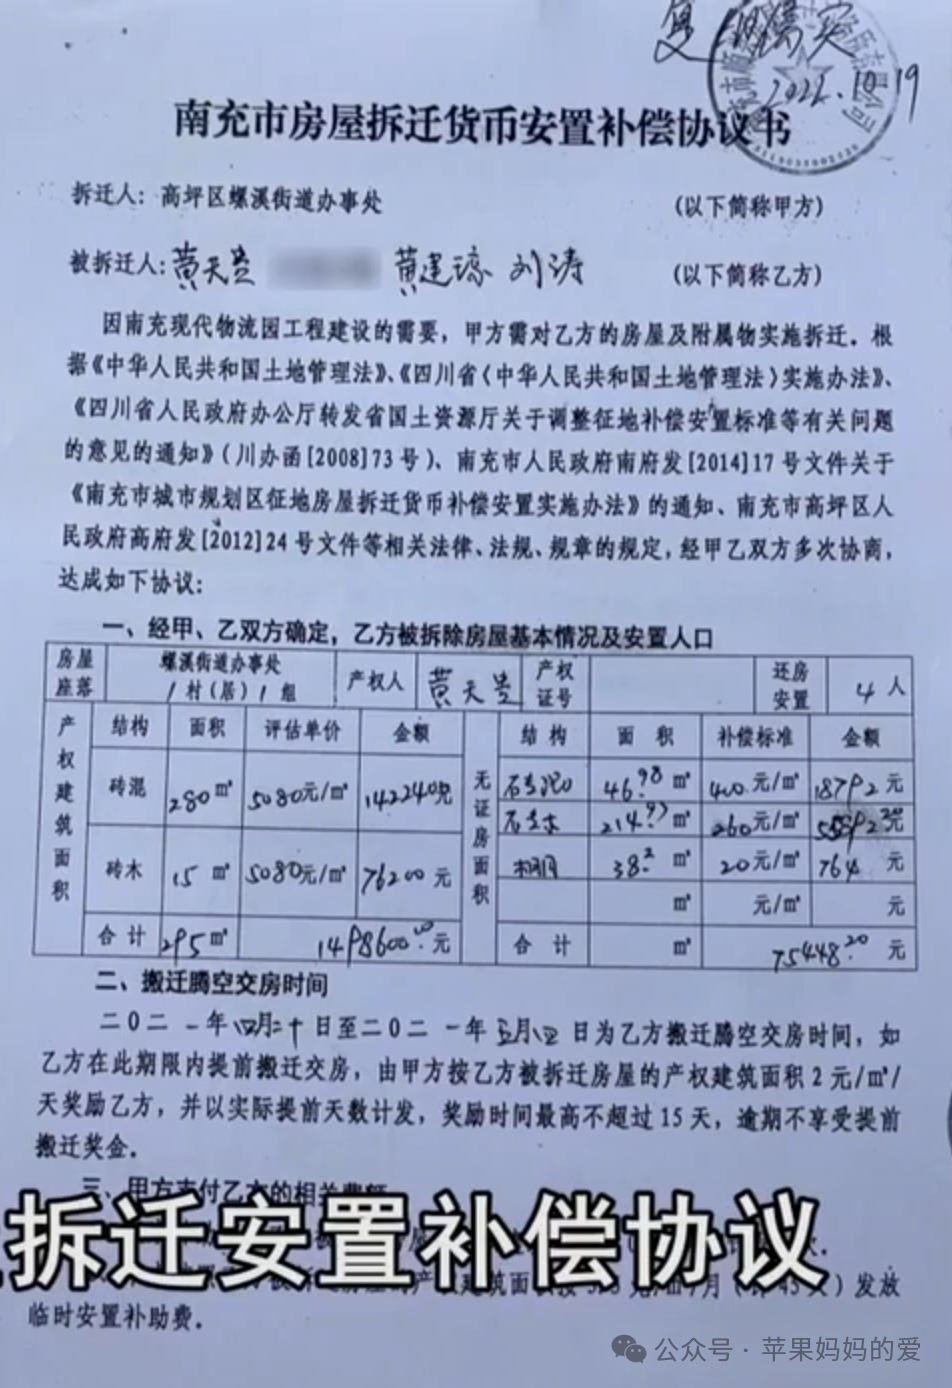 复印属实
2022.10.19
南充市房屋拆迁货币安置补偿协议书
拆迁人：高坪区螺溪街道办事处 （以下简称甲方）
被拆迁人：黄天贵 黄建琼 刘涛 （以下简称乙方）
因南充现代物流园工程建设的需要，甲方需对乙方的房屋及附属物实施拆迁．根
据《中华人民共和国土地管理法》、《四川省〈中华人民共和国土地管理法〉实施办法》、
《四川省人民政府办公厅转发省国土资源厅关于调整征地补偿安置标准等有关问题
的意见的通知》（川办函[2008]73号）、南充市人民政府南府发[2014]17号文件关于
《南充市城市规划区征地房屋拆迁货币补偿安置实施办法》的通知、南充市高坪区人
民政府高府发[2012]24号文件等相关法律、法规、规章的规定，经甲乙双方多次协商，
达成如下协议：
一、经甲、乙双方确定，乙方被拆除房屋基本情况及安置人口
房屋座落 螺溪街道办事处 1村（居）1组 产权人 黄天贵 产权证号 还房安置 4人
产权建筑面积 结构 面积 评估单价 金额 无证房面积 结构 面积 补偿标准 金额
砖混 280㎡ 5080元/㎡ 1422400元 46.98㎡ 400元/㎡ 18792元
214.97㎡ 260元/㎡ 元
砖木 15㎡ 5080元/㎡ 76200元 38.2㎡ 20元/㎡ 764元
㎡ 元/㎡ 元
合计 295㎡ 1498600.00元 合计 ㎡ 75448.20元
二、搬迁腾空交房时间
二0二一年四月二十日至二0二一年五月四日为乙方搬迁腾空交房时间，如
乙方在此期限内提前搬迁交房，由甲方按乙方被拆迁房屋的产权建筑面积2元/㎡/
天奖励乙方，并以实际提前天数计发，奖励时间最高不超过15天，逾期不享受提前
搬迁奖金．
三、甲方支付乙方的相关费额
拆迁安置补偿协议
发放
临时安置补助费．
公众号·苹果妈妈的爱